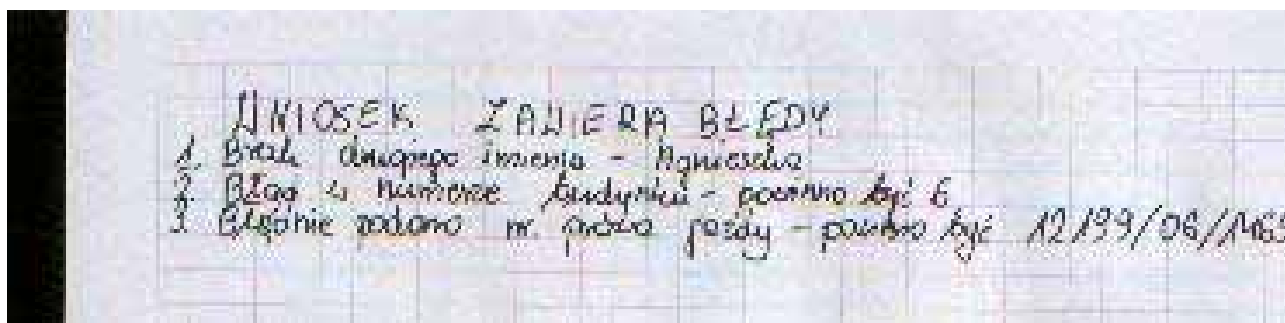 WNIOSEK ZAWIERA BŁĘDY
1. Brak drugiego imienia - Agnieszka
2. Błąd w numerze budynku - powinno być 6
3. Błędnie podano nr. prawa jazdy - powinno być 12199/06/1463